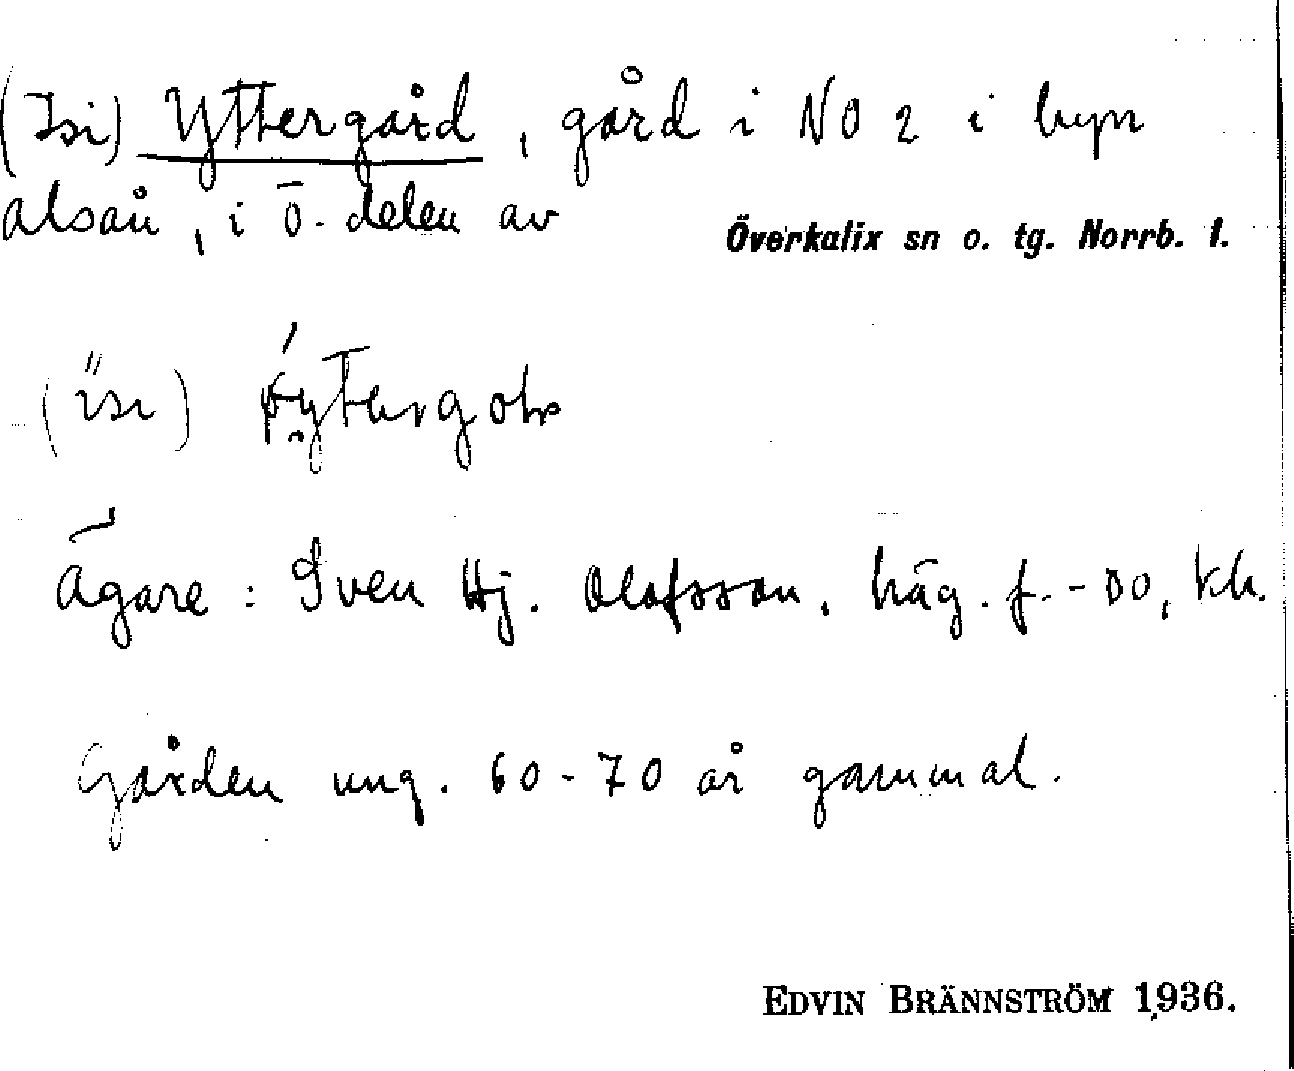 (Isi) Yttergård, gård i NO 2 i byn
Alsån, i ö. delen av
Överkalix sn o. tg. Norrb. l.
(isi)
Ägare: Sven Hj. Olofsson, häg. f. -00, kh.
Gården ung. 60-70 år gammal.
EDVIN BRÄNNSTRÖM 1936.